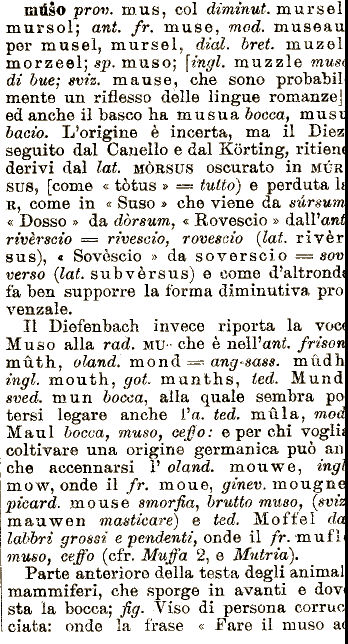 múso prov. mus, col diminut. mursel
mursol; ant. fr. muse, mod. museau
per musel, mursel, dial. bret. muzel
morzeel; sp. muso; [ingl. muzzle mus
di bue; sviz. mause, che sono probabil
mente un riflesso delle lingue romanze]
ed anche il basco ha musua bocca, mus
bacio. L'origine è incerta, ma il Diez
seguito dal Canello e dal Körting, ritien
derivi dal lat. MÒRSUS oscurato in MÚR
SUS, [come « tòtus » = tutto) e perduta l
R, come in « Suso » che viene da súrsum
« Dosso » da dòrsum, « Rovescio » dall'ant
rivèrscio = rivescio, rovescio (lat. rivèr
sus), « Sovèscio » da soverscio = sov
verso (lat. subvèrsus) e come d'altrond
fa ben supporre la forma diminutiva pro
venzale.
Il Diefenbach invece riporta la voce
Muso alla rad. MU- che è nell'ant. frison
mûth, oland. mond = ang-sass. mûdh
ingl. mouth, got. munths, ted. Mund
sved. mun bocca, alla quale sembra po
tersi legare anche l'a. ted. mûla, mod
Maul bocca, muso, ceffo: e per chi voglia
coltivare una origine germanica può an
che accennarsi l' oland. mouwe, ingl
mow, onde il fr. moue, ginev. mougne
picard. mouse smorfia, brutto muso, (sviz
mauwen masticare) e ted. Moffel da
labbri grossi e pendenti, onde il fr. mufl
muso, ceffo (cfr. Muffa 2, e Mutria).
Parte anteriore della testa degli animal
mammiferi, che sporge in avanti e dov
sta la bocca; fig. Viso di persona corruc
ciata: onde la frase « Fare il muso a